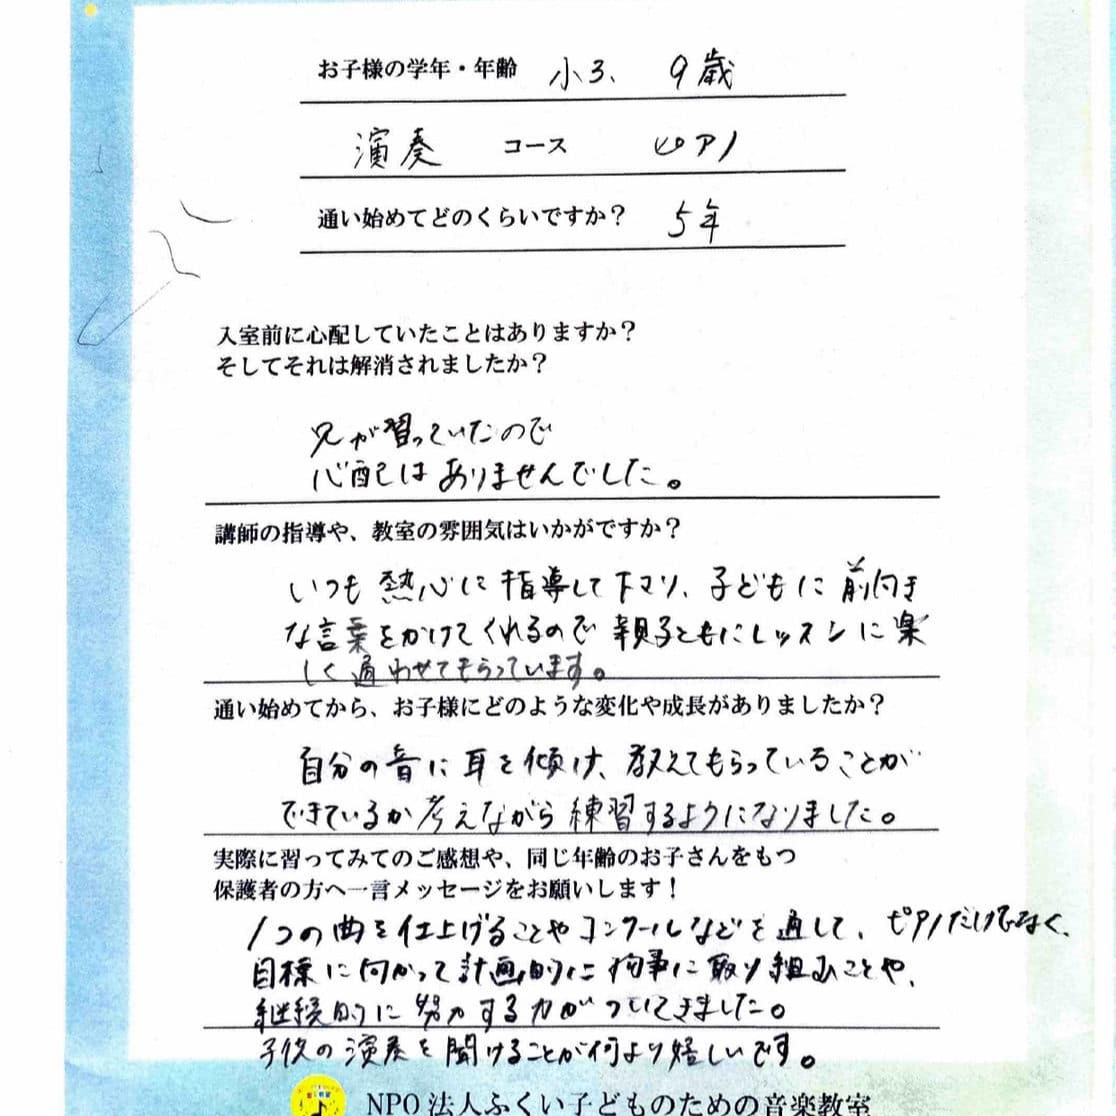 お子様の学年・年齢 小3、 9歳
演奏 コース ピアノ
通い始めてどのくらいですか？ 5年
入室前に心配していたことはありますか？
そしてそれは解消されましたか？
兄が習っていたので
心配はありませんでした。
講師の指導や、教室の雰囲気はいかがですか？
いつも熱心に指導して下さり、子どもに前向き
な言葉をかけてくれるので親子ともにレッスンに楽
しく通わせてもらっています。
通い始めてから、お子様にどのような変化や成長がありましたか？
自分の音に耳を傾け、教えてもらっていることが
できているか考えながら練習するようになりました。
実際に習ってみてのご感想や、同じ年齢のお子さんをもつ
保護者の方へ一言メッセージをお願いします！
1つの曲を仕上げることやコンクールなどを通して、ピアノだけでなく、
目標に向かって計画的に物事に取り組むことや、
継続的に努力する力がついてきました。
子供の演奏を聞けることが何より嬉しいです。
NPO法人ふくい子どものための音楽教室